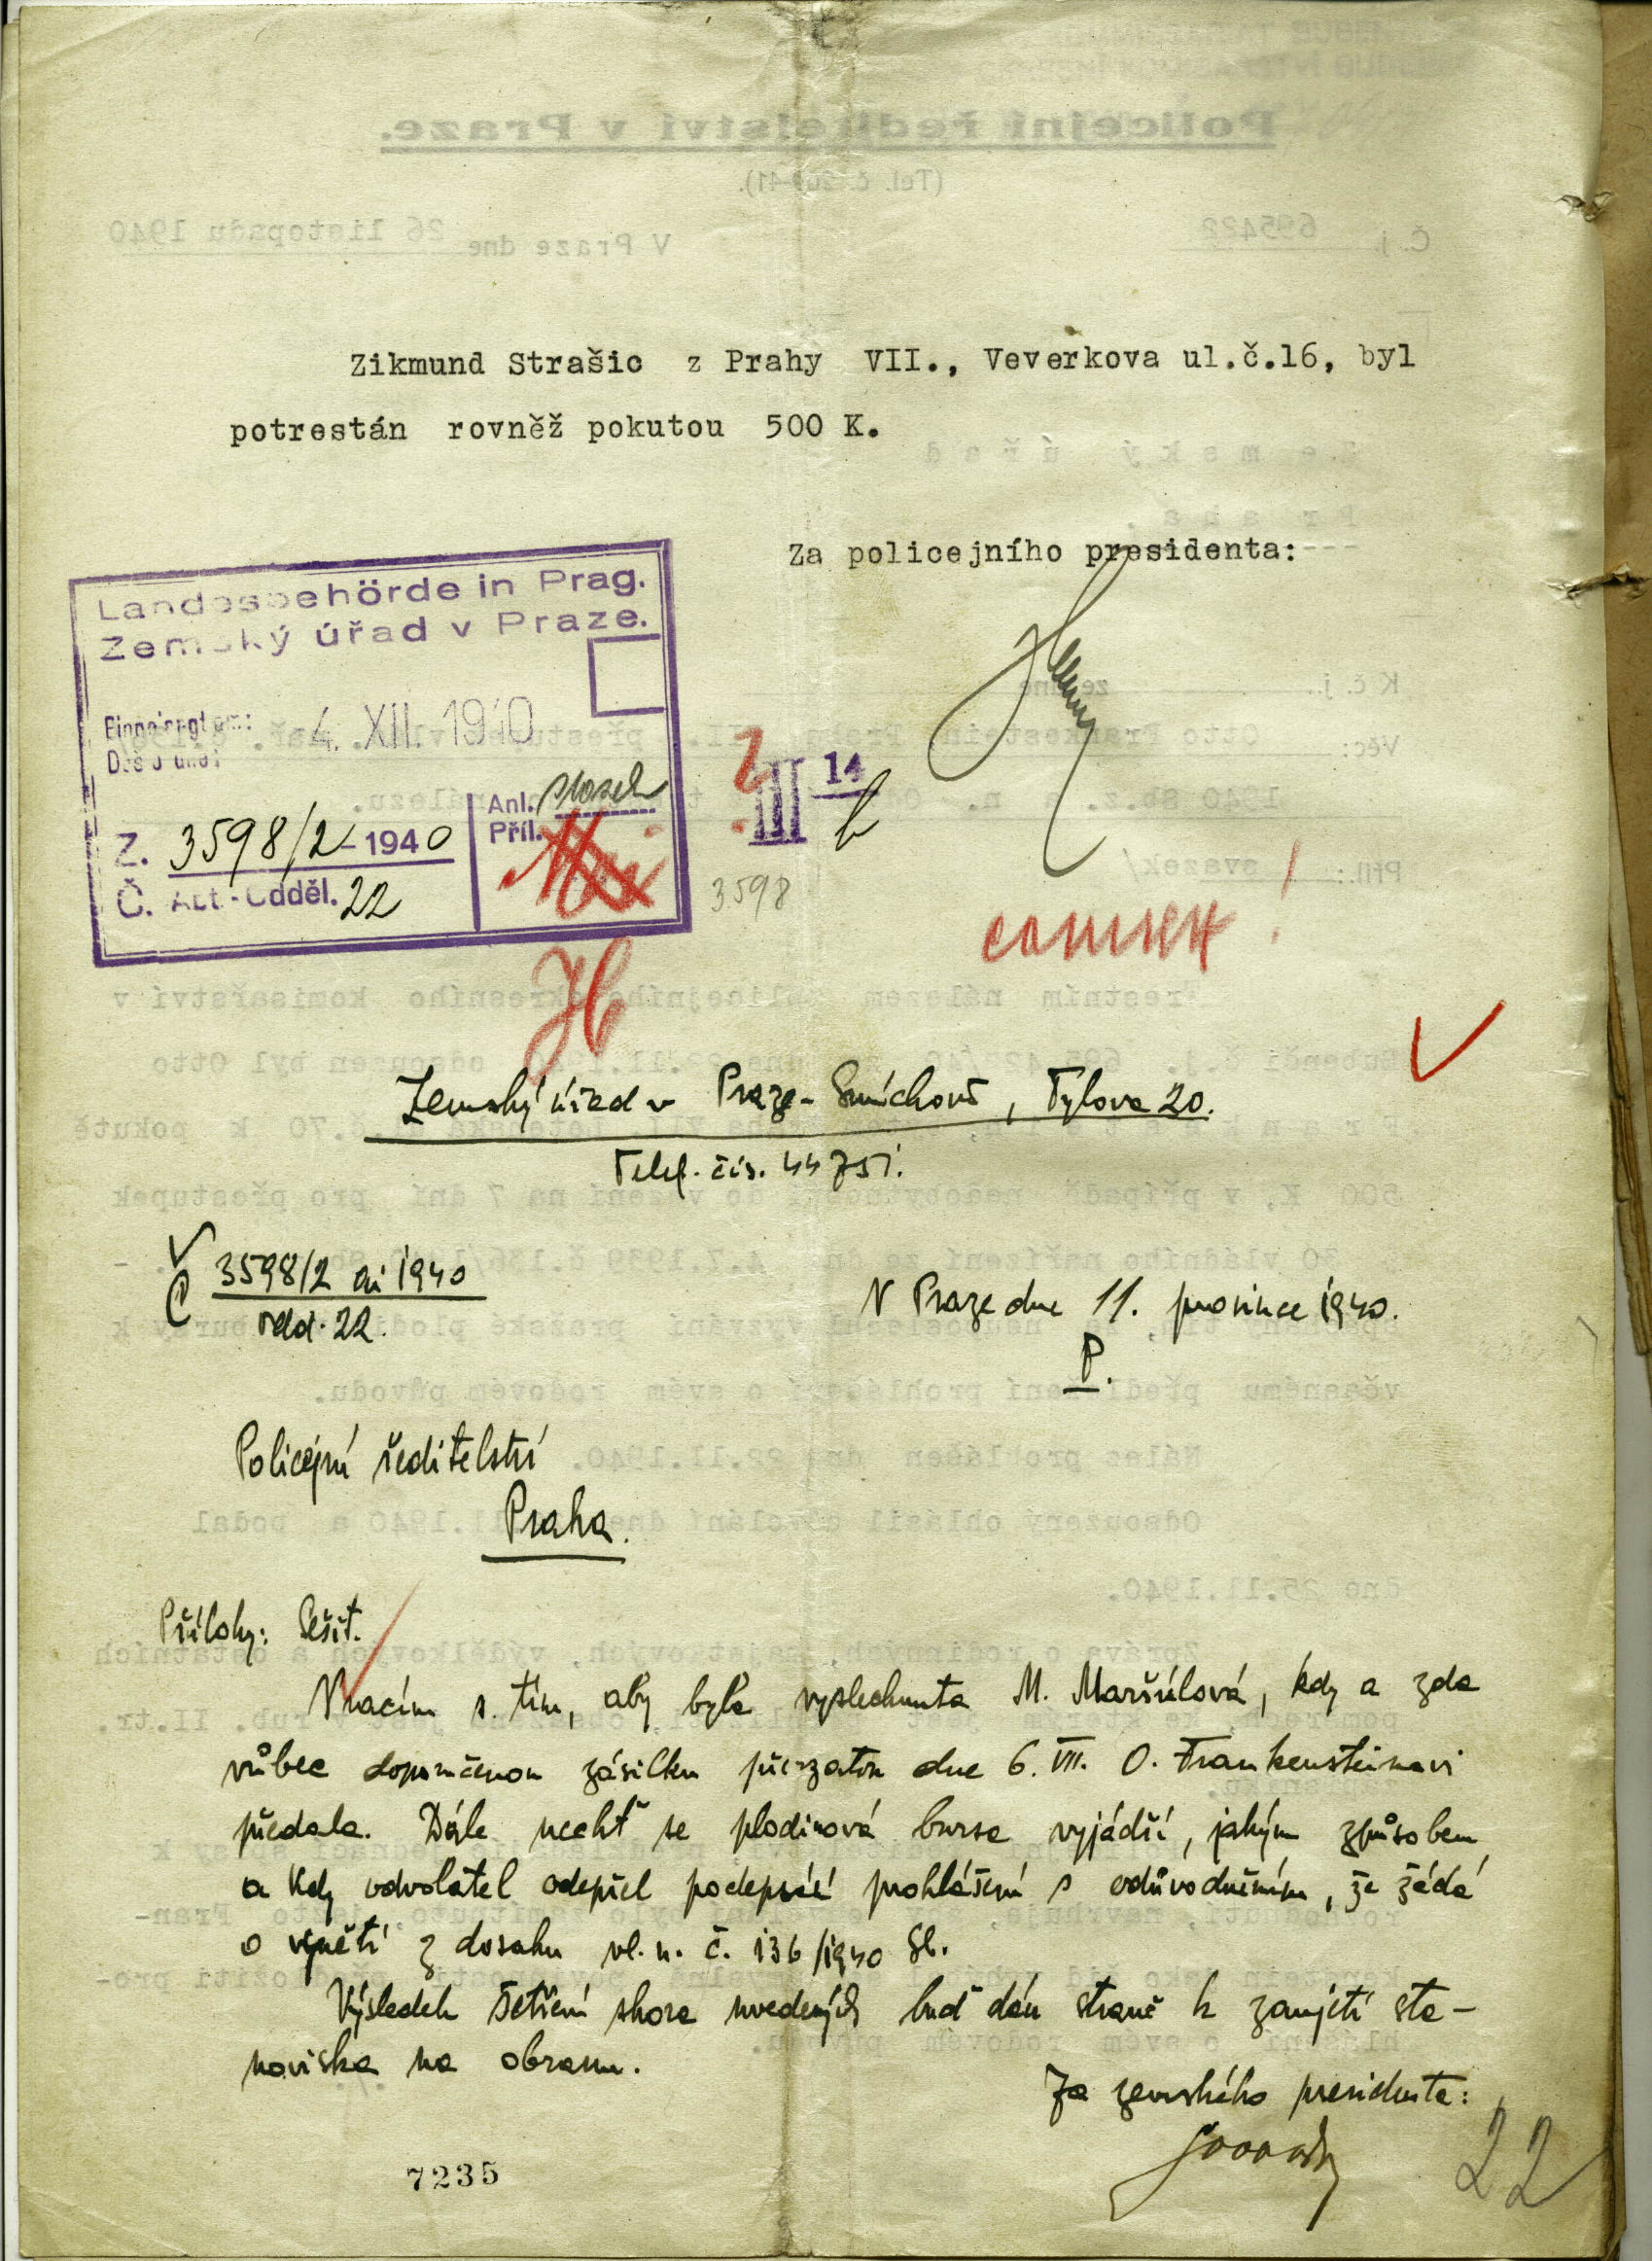 Zikmund Strašic z Prahy VII., Veverkova ul.č.16, byl
potrestán rovněž pokutou 500 K.
Za policejního presidenta:
Landesbehörde in Prag.
Zemský úřad v Praze.
Eingelangt am:
Došlo dne:
4. XII. 1940
Anl.
Příl.
Z. 3598/2-1940
Č. Abt.-Odděl. 22
III 14
3598
Zemský úřad v Praze-Smíchově, Tylova 20.
Telef. čís. 44751.
Č 3598/2 ai 1940
odd. 22.
V Praze dne 11. prosince 1940.
P.
Policejní ředitelství
Praha.
Přílohy: Sešit.
Vracím s tím, aby byla vyslechnuta M. Maršúlová, kdy a zda
vůbec doporučenou zásilku převzatou dne 6. VII. O. Frankensteinovi
předala. Dále nechť se plodinová bursa vyjádří, jakým způsobem
a kdy odvolatel odepřel podepsání prohlášení s odůvodněním, že žádá
o vynětí z dosahu vl. n. č. 136/1940 Sb.
Výsledek šetření shora uvedených buď dán straně k zaujetí sta-
noviska na obranu.
Za zemského presidenta:
7235
22